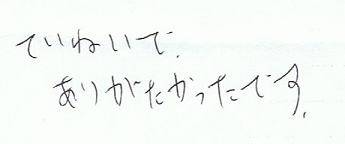 ていねいで、
ありがたかったです。